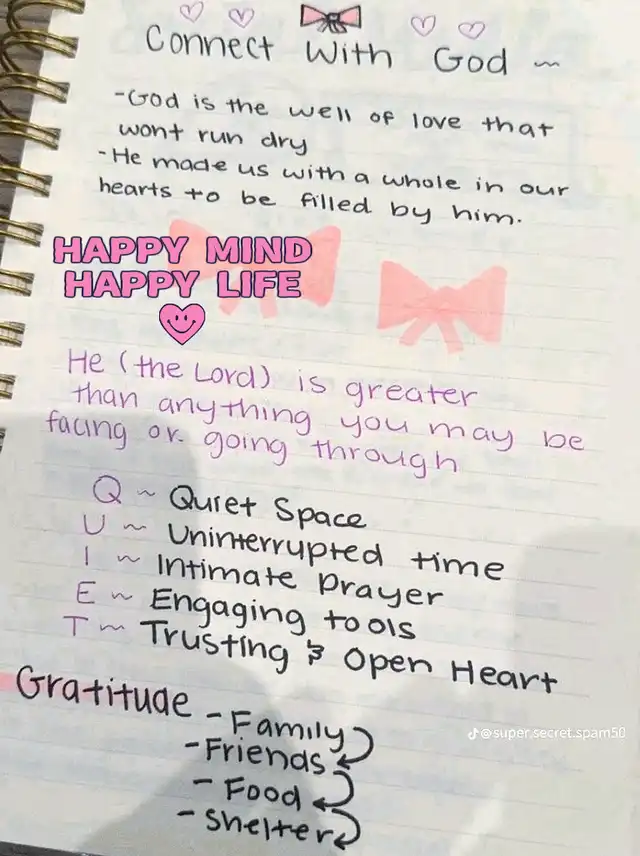 Connect With God ~
-God is the well of love that
wont run dry
-He made us with a whole in our
hearts to be filled by him.
HAPPY MIND
HAPPY LIFE
He (the Lord) is greater
than anything you may be
facing or going through
Q ~ Quiet Space
U ~ Uninterrupted time
I ~ Intimate prayer
E ~ Engaging tools
T ~ Trusting & Open Heart
Gratitude
- Family
- Friends
- Food
- Shelter
@super.secret.spam50